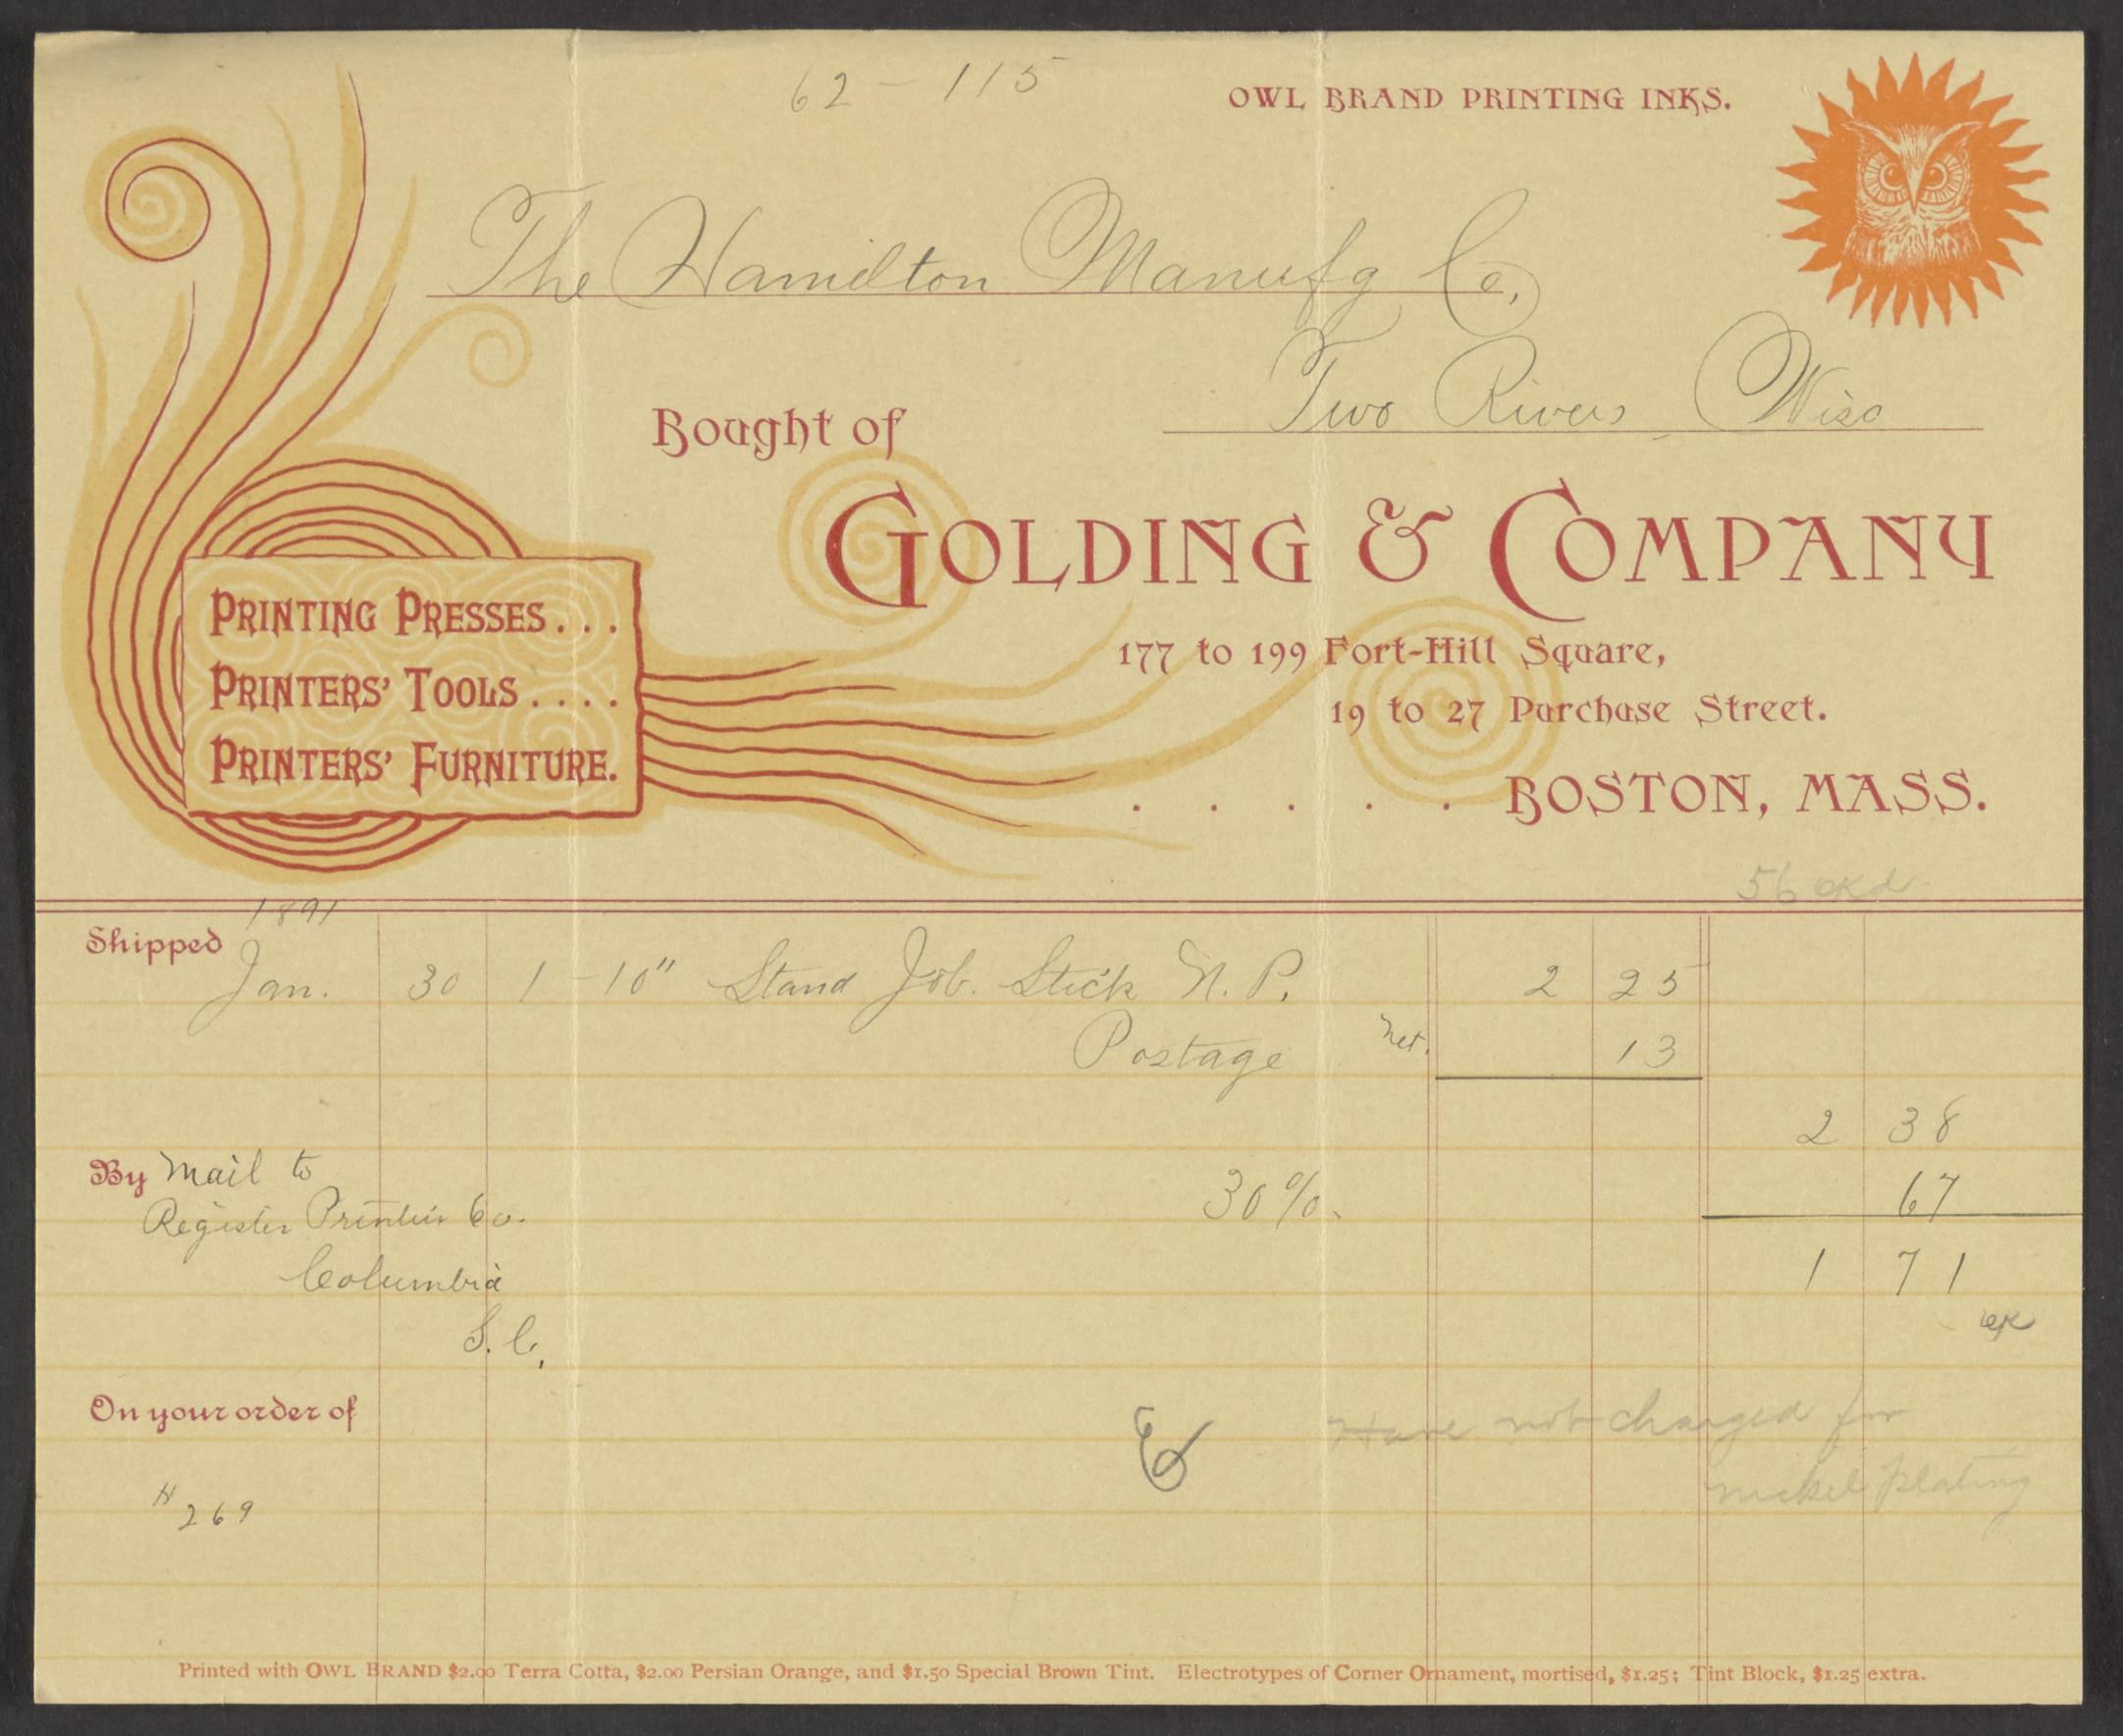 62 - 115
OWL BRAND PRINTING INKS.
The Hamilton Manufg Co,
Two Rivers Wisc
Bought of
GOLDING & COMPANY
PRINTING PRESSES . . .
PRINTERS' TOOLS . . . .
PRINTERS' FURNITURE.
177 to 199 Fort-Hill Square,
19 to 27 Purchase Street.
. . . . . BOSTON, MASS.
56
1891
Shipped Jan. 30 1 - 10" Stand Job. Stick N. P. 2 25
Postage Net. 13
2 38
By Mail to
30%. 67
Register Printin Co.
Columbia 1 71
S. C.
On your order of
Have not charged for
nickel plating
H 269
Printed with OWL BRAND $2.00 Terra Cotta, $2.00 Persian Orange, and $1.50 Special Brown Tint. Electrotypes of Corner Ornament, mortised, $1.25; Tint Block, $1.25 extra.